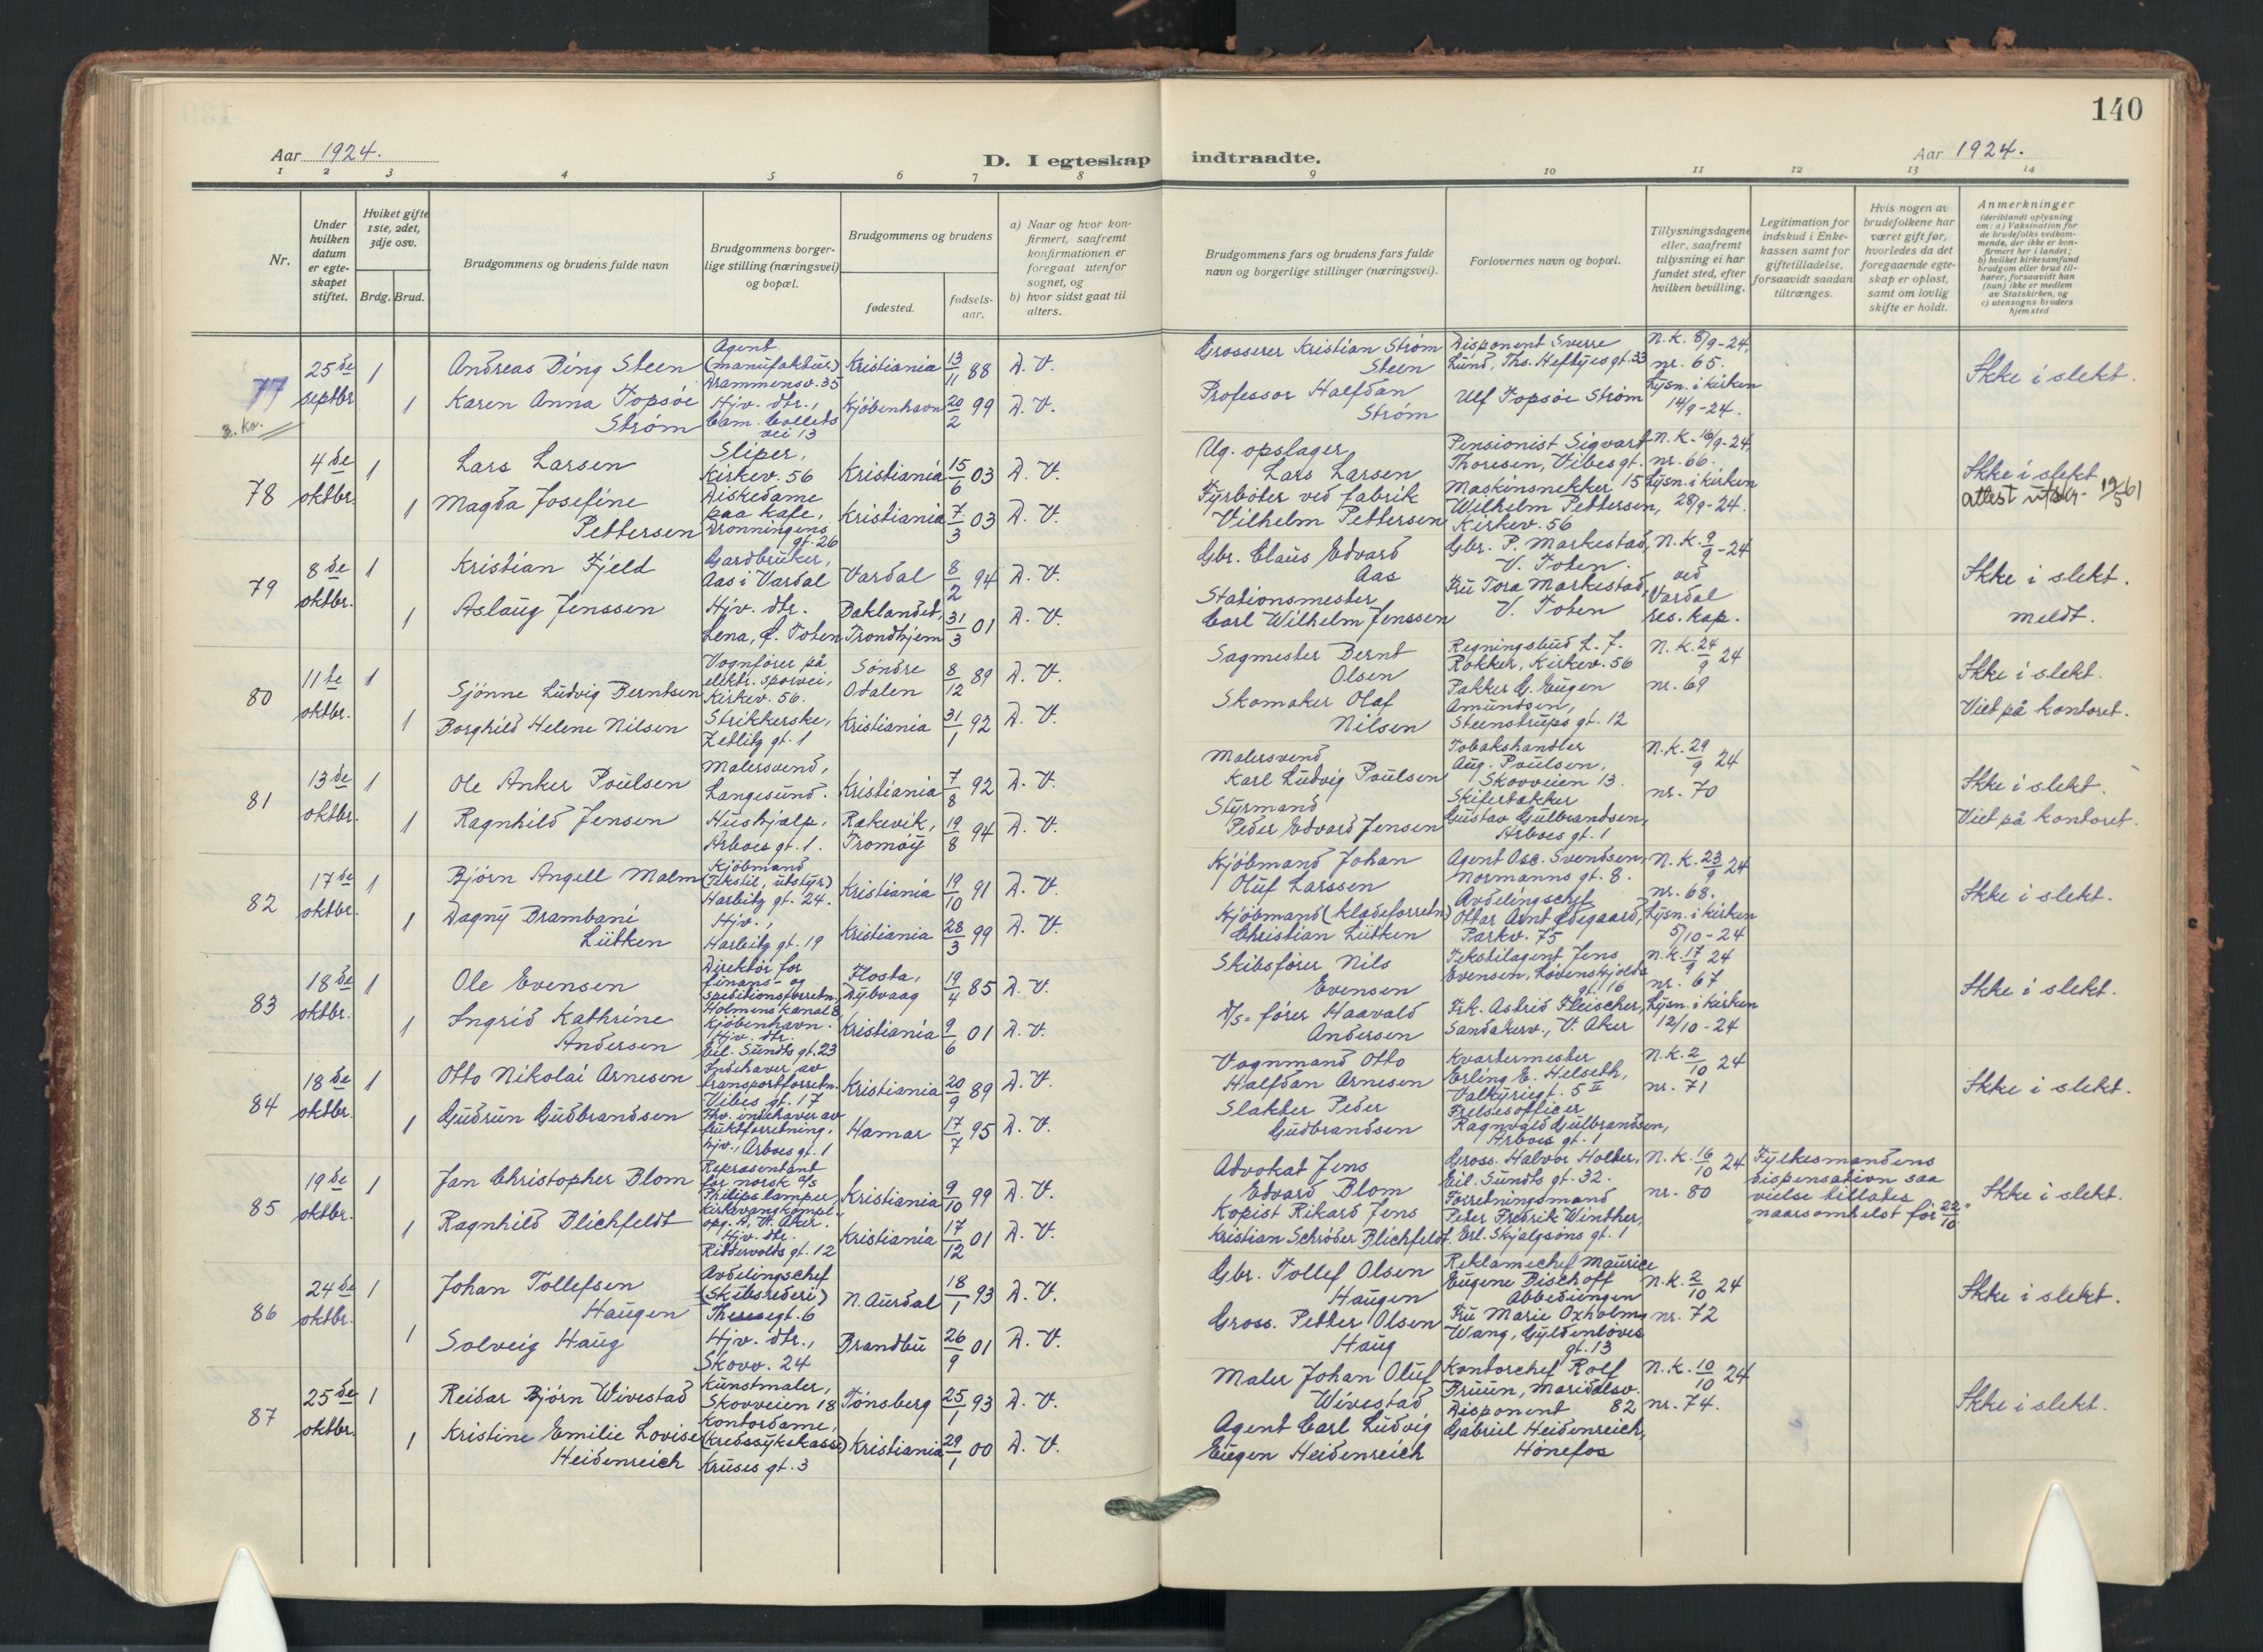 140
Aar 1924.
D. I egteskap indtraadte.
Aar 1924.
1 2 3 4 5 6 7 8 9 10 11 12 13 14
Nr.
Under hvilken datum er egteskapet stiftet.
Hviket gifte 1ste, 2det, 3dje osv.
Brdg. Brud.
Brudgommens og brudens fulde navn
Brudgommens borgerlige stilling (næringsvei) og bopæl.
Brudgommens og brudens
fødested.
fødselsaar.
a) Naar og hvor konfirmert, saafremt konfirmationen er foregaat utenfor sognet, og
b) hvor sidst gaat til alters.
Brudgommens fars og brudens fars fulde navn og borgerlige stillinger (næringsvei).
Forlovernes navn og bopæl.
Tillysningsdagene eller, saafremt tillysning ei har fundet sted, efter hvilken bevilling.
Legitimation for indskud i Enkekassen samt for giftetilladelse, forsaavidt saadan tiltrænges.
Hvis nogen av brudefolkene har været gift før, hvorledes da det foregaaende egteskap er opløst, samt om lovlig skifte er holdt.
Anmerkninger
(deriblandt oplysning om: a) Vaksination for de brudefolks vedkommende, der ikke er konfirmert her i landet; b) hvilket kirkesamfund brudgom eller brud tilhører, forsaavidt han (hun) ikke er medlem av Statskirken, og c) utensogns bruders hjemsted
77
3. kv.
25de septbr.
1
Andreas Ding Steen
Agent (manufaktur) Drammensv. 35
Kristiania
13/11 88
D. V.
Grosserer Kristian Strøm Steen
Disponent Sverre Lund, Ths. Heftyes gt. 33
N.K. 8/9-24, nr. 65.
Ikke i slekt.
1
Karen Anna Topsöe Strøm
Hjv. dtr., Cam. Colletts vei 13
Kjöbenhavn
20/2 99
D. V.
Professor Halfdan Strøm
Ulf Topsöe Strøm
Lysn. i kirken 14/9-24.
78
4de oktbr.
1
Lars Larsen
Sliper, Kirkev. 56
Kristiania
15/6 03
D. V.
Ug. opslager Lars Larsen
Pensionist Sigvart Thoresen, Vibes gt. 15
N.K. 16/9-24, nr. 66.
Ikke i slekt
attest utskr. 19/5 61
1
Magda Josefine Pettersen
Diskedame paa kafe, Dronningens gt. 26
Kristiania
7/3 03
D. V.
Fyrböter ved fabrik Vilhelm Pettersen
Maskinsnekker Wilhelm Pettersen, Kirkev. 56
Lysn. i kirken 28/9-24.
79
8de oktbr.
1
Kristian Fjeld
Gardbruker, Aas i Vardal
Vardal
8/2 94
D. V.
Gbr. Claus Edvard Aas
Gbr. P. Markestad, V. Toten.
N.K. 9/9-24
Ikke i slekt.
1
Aslaug Jenssen
Hjv. dtr. Lena, Ö. Toten
Baklandet, Trondhjem
31/3 01
D. V.
Stationsmester Carl Wilhelm Jenssen
Fru Tora Markestad, V. Toten
ved Vardal res. kap.
meldt.
80
11te oktbr.
1
Sjönne Ludvig Berntsen
Vognfører på elektr. sporvei, Kirkev. 56.
Söndre Odalen
8/12 89
D. V.
Sagmester Bernt Olsen
Regningsbud L. F. Rokker, Kirkev. 56
N.K. 24/9 24
Ikke i slekt.
1
Borghild Helene Nilsen
Strikkerske, Zetlitz gt. 1
Kristiania
31/1 92
D. V.
Skomaker Olaf Nilsen
Pakker G. Eugen Amundsen, Steenstrups gt. 12
nr. 69
Viet på kontoret.
81
13de oktbr.
1
Ole Anker Poulsen
Malersvend, Langesund.
Kristiania
7/8 92
D. V.
Malersvend Karl Ludvig Poulsen
Tobakshandler Aug. Poulsen, Skovveien 13.
N.K. 29/9 24
Ikke i slekt.
1
Ragnhild Jensen
Hushjælp, Arboes gt. 1.
Rækevik, Tromöy
19/8 94
D. V.
Styrmand Peder Edvard Jensen
Skifertækker Gustav Gulbrandsen, Arboes gt. 1
nr. 70
Viet på kontoret.
82
17de oktbr.
1
Björn Angell Malm
Kjöbmand (Tekstil, utstyr) Harbitz gt. 24.
Kristiania
19/10 91
D. V.
Kjöbmand Johan Oluf Larssen
Agent Osc. Svendsen, Normanns gt. 8.
N.K. 23/9 24 nr. 68.
Ikke i slekt.
1
Dagny Brambani Lütken
Hjv., Harbitz gt. 19
Kristiania
28/3 99
D. V.
Kjöbmand (klædeforretn) Christian Lütken
Avdelingschef Ottar Arnt Ödegaard, Parkv. 75
Lysn. i kirken 5/10-24
83
18de oktbr.
1
Ole Evensen
Direktör for finans- og speditionsforretn. Holmens Kanal 8 Kjöbenhavn.
Flosta, Dybvaag
19/4 85
D. V.
Skibsfører Nils Evensen
Tekstilagent Jens Evensen, Lövenskjolds gt. 16
N.K. 17/9 24 nr. 67
Ikke i slekt.
1
Ingrid Kathrine Andersen
Hjv. dtr. Eil. Sundts gt. 23
Kristiania
9/6 01
D. V.
D/S-fører Haavald Andersen
Frk. Astrid Fleischer, Sandakerv., V. Aker
Lysn. i kirken 12/10-24
84
18de oktbr.
1
Otto Nikolai Arnesen
Indehaver av transportforretn. Vibes gt. 17
Kristiania
20/9 89
D. V.
Vognmand Otto Halfdan Arnesen
Kvartermester Erling E. Helseth, Valkyriegt. 5 II
N.K. 2/10 24 nr. 71
Ikke i slekt.
1
Gudrun Gudbrandsen
Thv. indehaver av fruktforretning, hjv., Arboes gt. 1
Hamar
17/7 95
D. V.
Slakter Peder Gudbrandsen
Frelsesofficer Ragnvald Gulbrandsen, Arboes gt. 1
85
19de oktbr.
1
Jan Christopher Blom
Repræsentant for norsk A/S Philips lamper, Kirkevangkompl. opg. H, V. Aker.
Kristiania
9/10 99
D. V.
Advokat Jens Edvard Blom
Gross. Halvor Holter, Eil. Sundts gt. 32.
N.K. 16/10 24 nr. 80
Fylkesmandens dispensation saa vielse tillates "naarsomhelst før 22/10"
Ikke i slekt.
1
Ragnhild Blichfeldt
Hjv. dtr. Riddervolds gt. 12
Kristiania
17/12 01
D. V.
Kopist Rikard Jens Kristian Schröder Blichfeldt
Forretningsmand Peter Fredrik Winther, Erl. Skjalgsöns gt. 1
86
24de oktbr.
1
Johan Tollefsen Haugen
Avdelingschef (Skibsrederi) Theresegt. 6
N. Aurdal
18/1 93
D. V.
Gbr. Tollef Olsen Haugen
Reklamechef Maurice Eugene Bischoff Abbediengen
N.K. 2/10 24
Ikke i slekt.
1
Solveig Haug
Hjv. dtr., Skovv. 24
Brandbu
26/9 01
D. V.
Gross. Petter Olsen Haug
Fru Marie Oxholm Wang, Gyldenlöves gt. 13
nr. 72
87
25de oktbr.
1
Reidar Björn Wivestad
Kunstmaler, Skovveien 18
Tönsberg
25/1 93
D. V.
Maler Johan Oluf Wivestad
Kontorchef Rolf Bruun, Maridalsv. 82
N.K. 10/10 24
Ikke i slekt.
1
Kristine Emilie Lovise Heidenreich
Kontordame, (Kredssykekasse) Kruses gt. 3
Kristiania
29/1 00
D. V.
Agent Carl Ludvig Eugen Heidenreich
Disponent Gabriel Heidenreich, Hönefos
nr. 74.